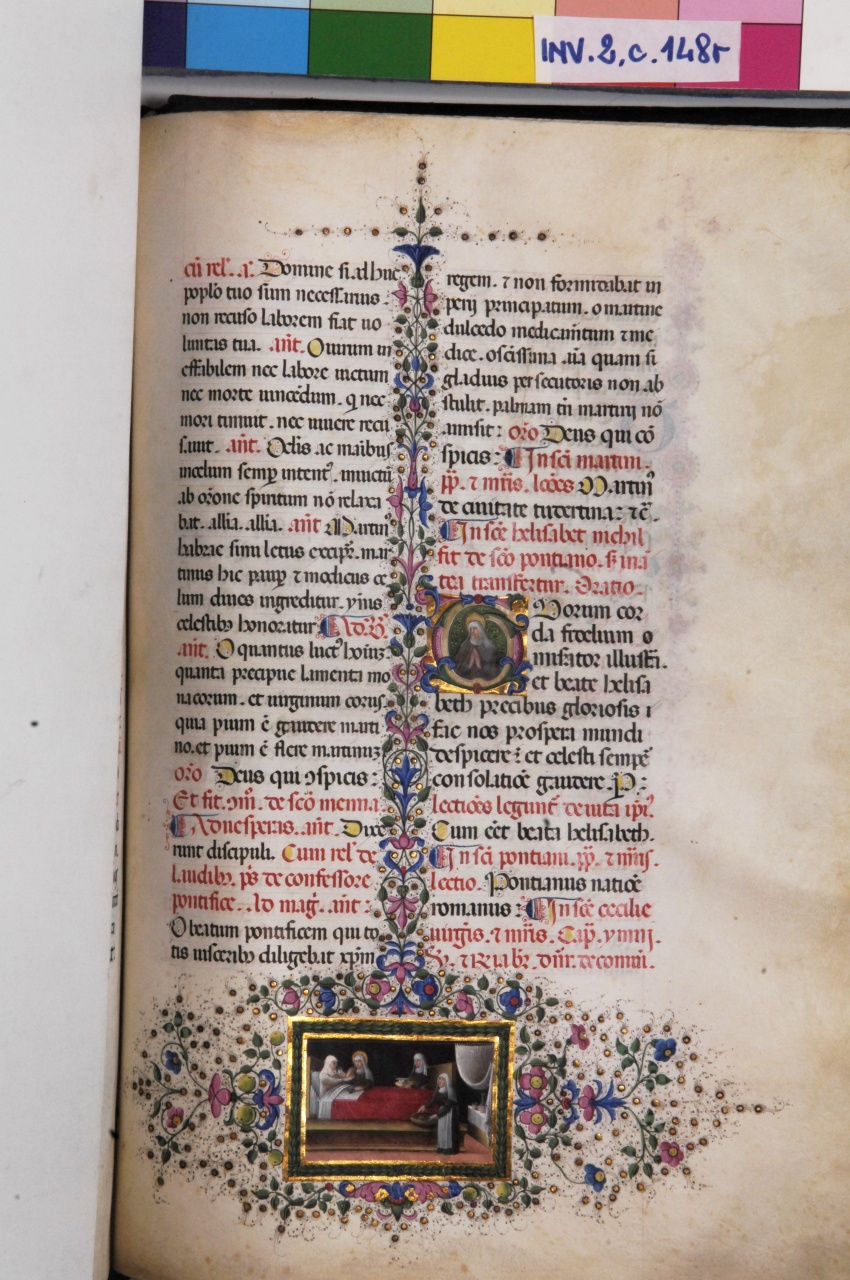 INV. 2, c. 148r
cū rel'. a. Domine si adhuc
poplo tuo sum necessarius.
non recuso laborem fiat uo
luntas tua. añt. O uirum in
effabilem nec labore uictum
nec morte uincēdum. q nec
mori timuit. nec uiuere recu
sauit. añt. Oclis ac maībus
in celum semp intent' inuictū
ab orōne spiritum nō relaxa
bat. allīa. allīa. añt Martin'
habrae sinu letus excipr. mar
tinus hic paup ⁊ modicus ce
lum diues ingreditur. ymis
celestibʒ honoratur Ad. B'.
añt. O quantus luct' hoīuʒ.
quanta precipue lamenta mo
nacorum. et uirginum corus.
quia pium ē gaudere marti
no. et pium ē flere martinuʒ
oro Deus qui ɔspicis:
Et fit ɔm̄. de scō menna
Ad uesperas. añt. Dixe
runt discipuli. Cum rel' de
laudibʒ. ps de confessore
pontifice. Ad mag. añt:
O beatum pontificem qui to
tis uisceribʒ diligebat xpm
regem. ⁊ non formidabat im
perij principatum. o martine
dulcedo medicam̄tum ⁊ me
dice. o scissima aīa quam si
gladius persecutoris non ab
stulit. palmam tn̄ martirij nō
amisit: oro Deus qui cō
spicis: In scī martini.
pp. ⁊ mr̄is. lcōes Martin'
de ciuitate tudertina: ⁊c̄.
In scē helisabet nichil
fit de scō pontiano. s; in a
tea transfertur. Oratio.
Tuorum cor
da fidelium o
miserator illustra.
et beate helisa
beth precibus gloriosis
fac nos prospera mundi
despicere: et celesti sempē
consolatiōe gaudere. P:
lectiōes legunt' de uita ipī'.
Cum eēt beata helisabeth.
In scī pontiani. pp. ⁊ mr̄is.
lectio. Pontianus natiōe
romanus: In scē cecilie
uirgīs. ⁊ mr̄is. Cap. ymnij.